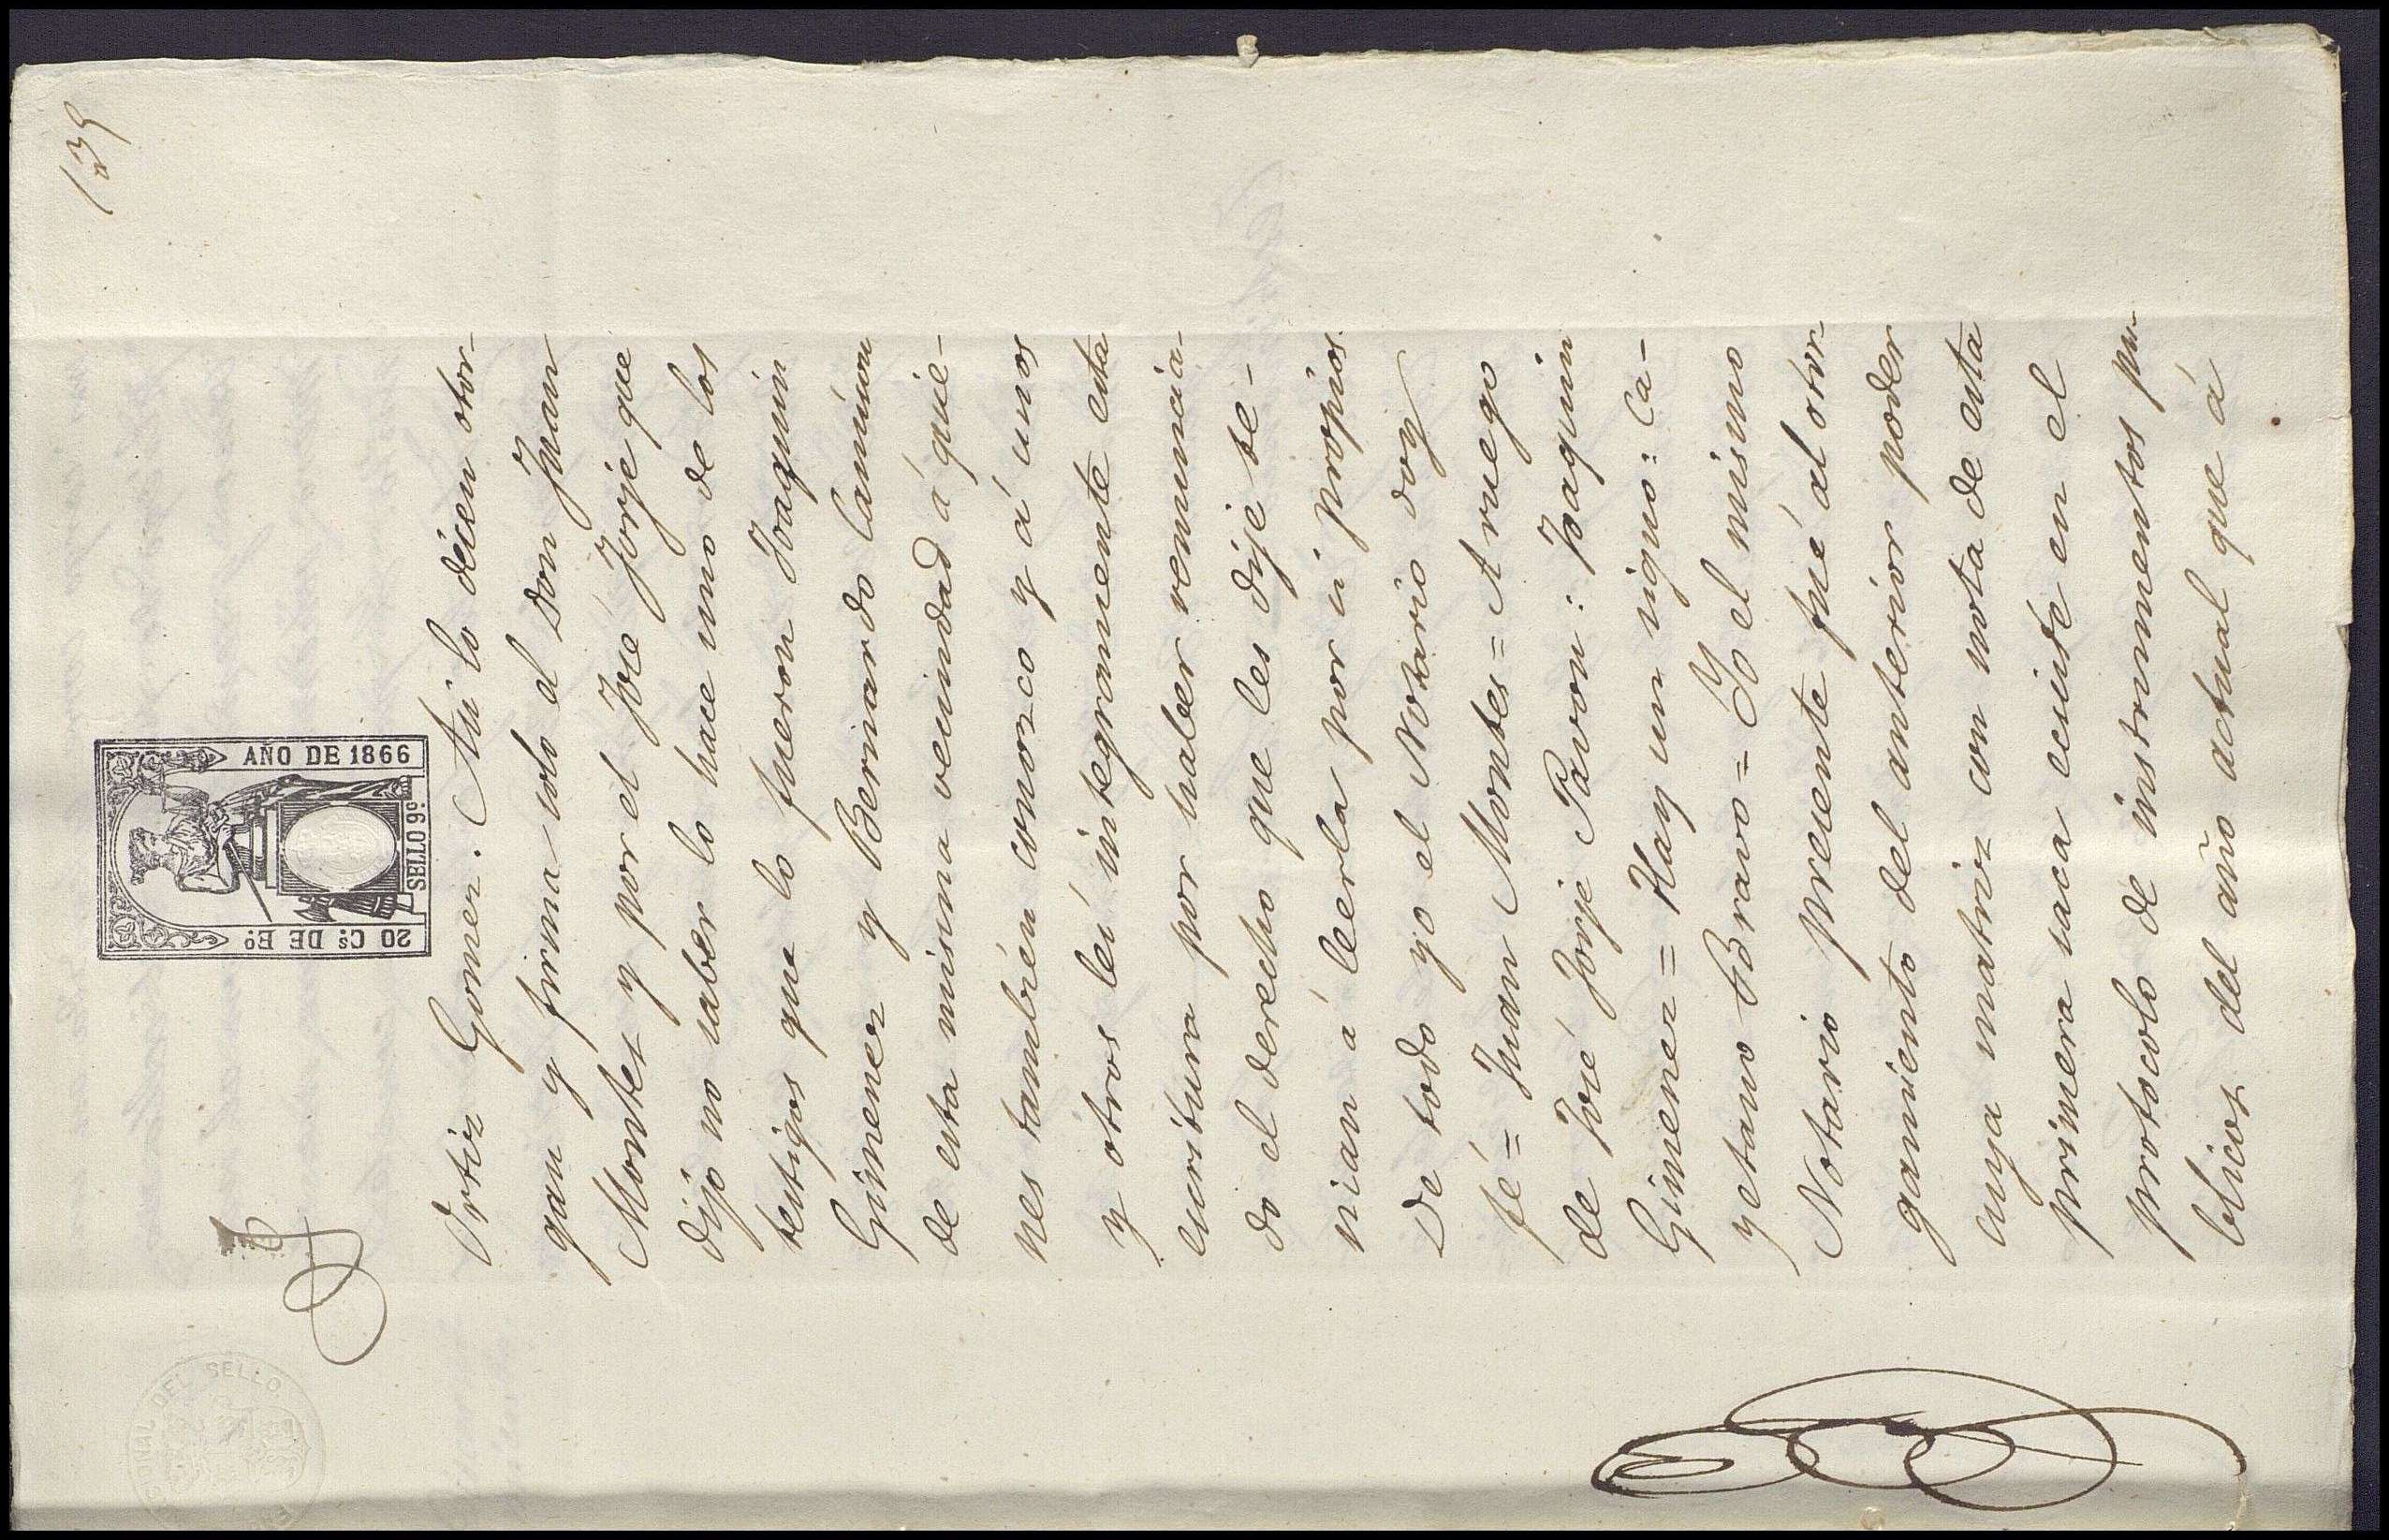 135
20 Cs DE Eo
AÑO DE 1866
SELLO 9º
DEL SELLO
Ortiz Gomez. Asi lo dicen otor-
gan y firma solo el Don Juan
Montes y por el José Jorje que
dijo no saber lo hace uno de los
testigos que lo fueron Joaquin
Gimenez y Bernardo Camison
de esta misma vecindad á quie-
nes tambien conozco y á unos
y otros leí integramente esta
escritura por haber renuncia-
do el derecho que les dije te-
nian á leerla por si propios.
De todo yo el Notario doy
fé = Juan Montes = A ruego
de José Jorje Pavon: Joaquin
Gimenez = Hay un signo: Ca-
yetano Bravo = Yo el mismo
Notario presente fué al otor
gamiento del anterior poder
cuya matriz con nota de esta
primera saca ecsiste en el
protocolo de instrumentos pu-
blicos del año actual que á